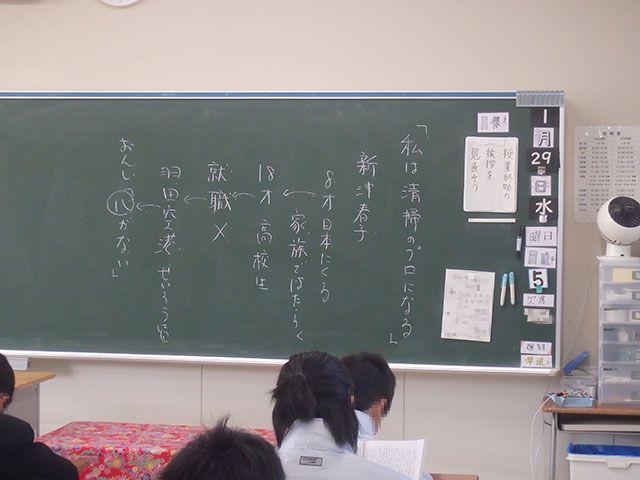 1
月
29
日
水
曜日
5
欠席
遅刻
早退
授業終始の
挨拶を
見直そう
「私は清掃のプロになる」
新津春子
8才日本にくる
家族ではたらく
18才 高校生
就職 ×
羽田空港 せいそう員
心がない」